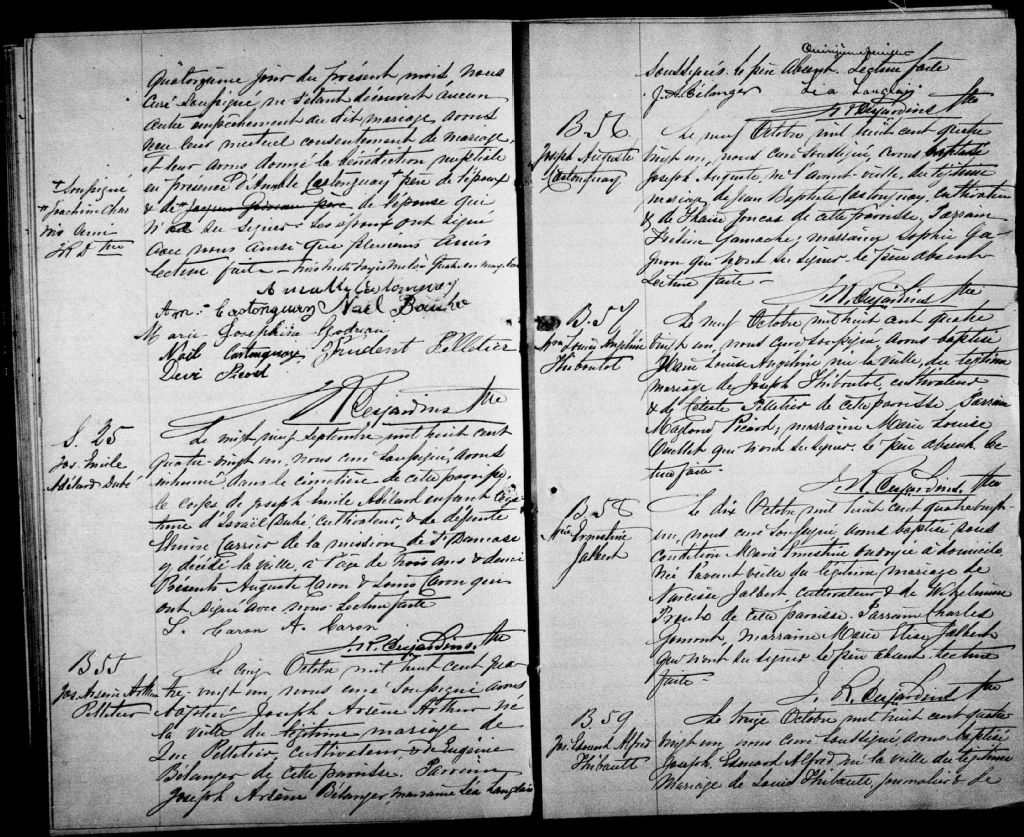 quatorzième jour du présent mois, nous
curé soussigné ne s'étant découvert aucun
autre empêchement au dit mariage avons
reçu leur mutuel consentement de mariage,
et leur avons donné la bénédiction nuptiale
en présence d'Amable Castonguay + père de l'époux
& de de l'épouse qui
n'a su signer. Les époux ont signé
avec nous ainsi que plusieurs amis
Lecture faite
+ soussigné
Joachim
ami
Amable Castonguay
Am: Castonguay Noël
Marie Josephine Godreau
Noël Castonguay Prudent Pelletier
Picard
J. R. Desjardins Ptre
S. 25
Jos. Emile
Adélard Dubé
Le vingt neuf Septembre mil huit cent
quatre-vingt un, nous curé soussigné, avons
inhumé, dans le cimetière de cette paroisse,
le corps de Joseph Emile Adélard enfant légi-
time d'Israël Dubé, cultivateur, & de défunte
Carrier de la mission de St Damase
y décédé la veille, à l'âge de trois ans & demi
Présents Auguste Caron & Louis Caron qui
ont signé avec nous. Lecture faite
L. Caron A. Caron
J. R. Desjardins Ptre
B 55
Jos. Arsène Arthur
Pelletier
Le cinq Octobre mil huit cent qua-
tre-vingt un, nous curé soussigné avons
baptisé Joseph Arsène Arthur né
la veille du légitime mariage de
Luc Pelletier cultivateur & de Eugénie
Bélanger de cette paroisse. Parrain
Joseph Arsène Bélanger, marraine Léa Langlais
soussignés. le père absent. Lecture faite
J. A. Bélanger Léa Langlais
J. R. Desjardins Ptre
B 56
Joseph Auguste
Castonguay
Le neuf Octobre mil huit cent quatre
vingt un, nous curé soussigné, avons baptisé
Joseph Auguste, né l'avant-veille, du légitime
mariage de Jean Baptiste Castonguay, cultivateur
& de Joncas de cette paroisse. Parrain
Gamache; marraine Sophie Ga-
gnon qui n'ont su signer. le père absent
Lecture faite-
J. R. Desjardins Ptre
B 57
Mie Louise Angéline
Thiboutot
Le neuf Octobre mil huit cent quatre
vingt un, nous curé soussigné avons baptisé
Marie Louise Angéline née la veille, du légitime
mariage de Joseph Thiboutot, cultivateur
& de Céleste Pelletier de cette paroisse. Parrain
Picard; marraine Marie Louise
Ouellet qui n'ont su signer. le père absent. Lec
ture faite.
J. R. Desjardins Ptre
B 58
Mie Ermestine
Jalbert
Le dix Octobre mil huit cent quatre vingt
un, nous curé soussigné avons baptisé sous
condition Marie Ermestine ondoyée à domicile,
née l'avant veille du légitime mariage de
Narcisse Jalbert cultivateur & de Wilhelmine
de cette paroisse. Parrain Charles
marraine Marie Elise Jalbert
qui n'ont su signer. le père absent. Lecture
faite-
J. R. Desjardins Ptre
B 59
Jos. Edouard Alfred
Thibault
Le treize Octobre mil huit cent quatre
vingt un, nous curé soussigné avons baptisé
Joseph, Edouard Alfred né la veille du légitime
Mariage de Louis Thibault, journalier & de